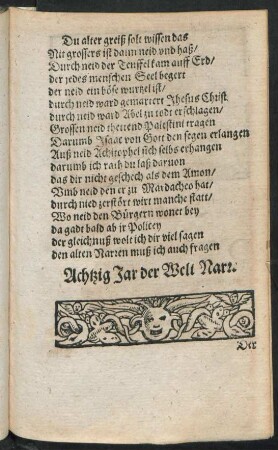 Du alter greiß solt wissen das
Nit grossers ist dann neid vnd haß/
Durch neid der Teuffel kam auff Erd/
der jedes menschen Seel begert
der neid ein böse wurtzel ist/
durch neid ward gemartert Jhesus Christ
durch neid ward Abel zu todt erschlagen/
Grossen neid thetend Palestini tragen
Darumb Isaac von Gott den segen erlangen
Auß neid Achitophel sich selbs erhangen
darumb ich rath du laß daruon
das dir nicht geschech als dem Amon/
Vmb neid den er zu Mardacheo hat/
durch nied zerstört wirt manche statt/
Wo neid den Bürgern woner bey
da gadt bald ab jr Policey
der gleichnuß wolt ich dir viel sagen
den alten Narren muß ich auch fragen
Achtzig Jar der Welt Narr.
Der